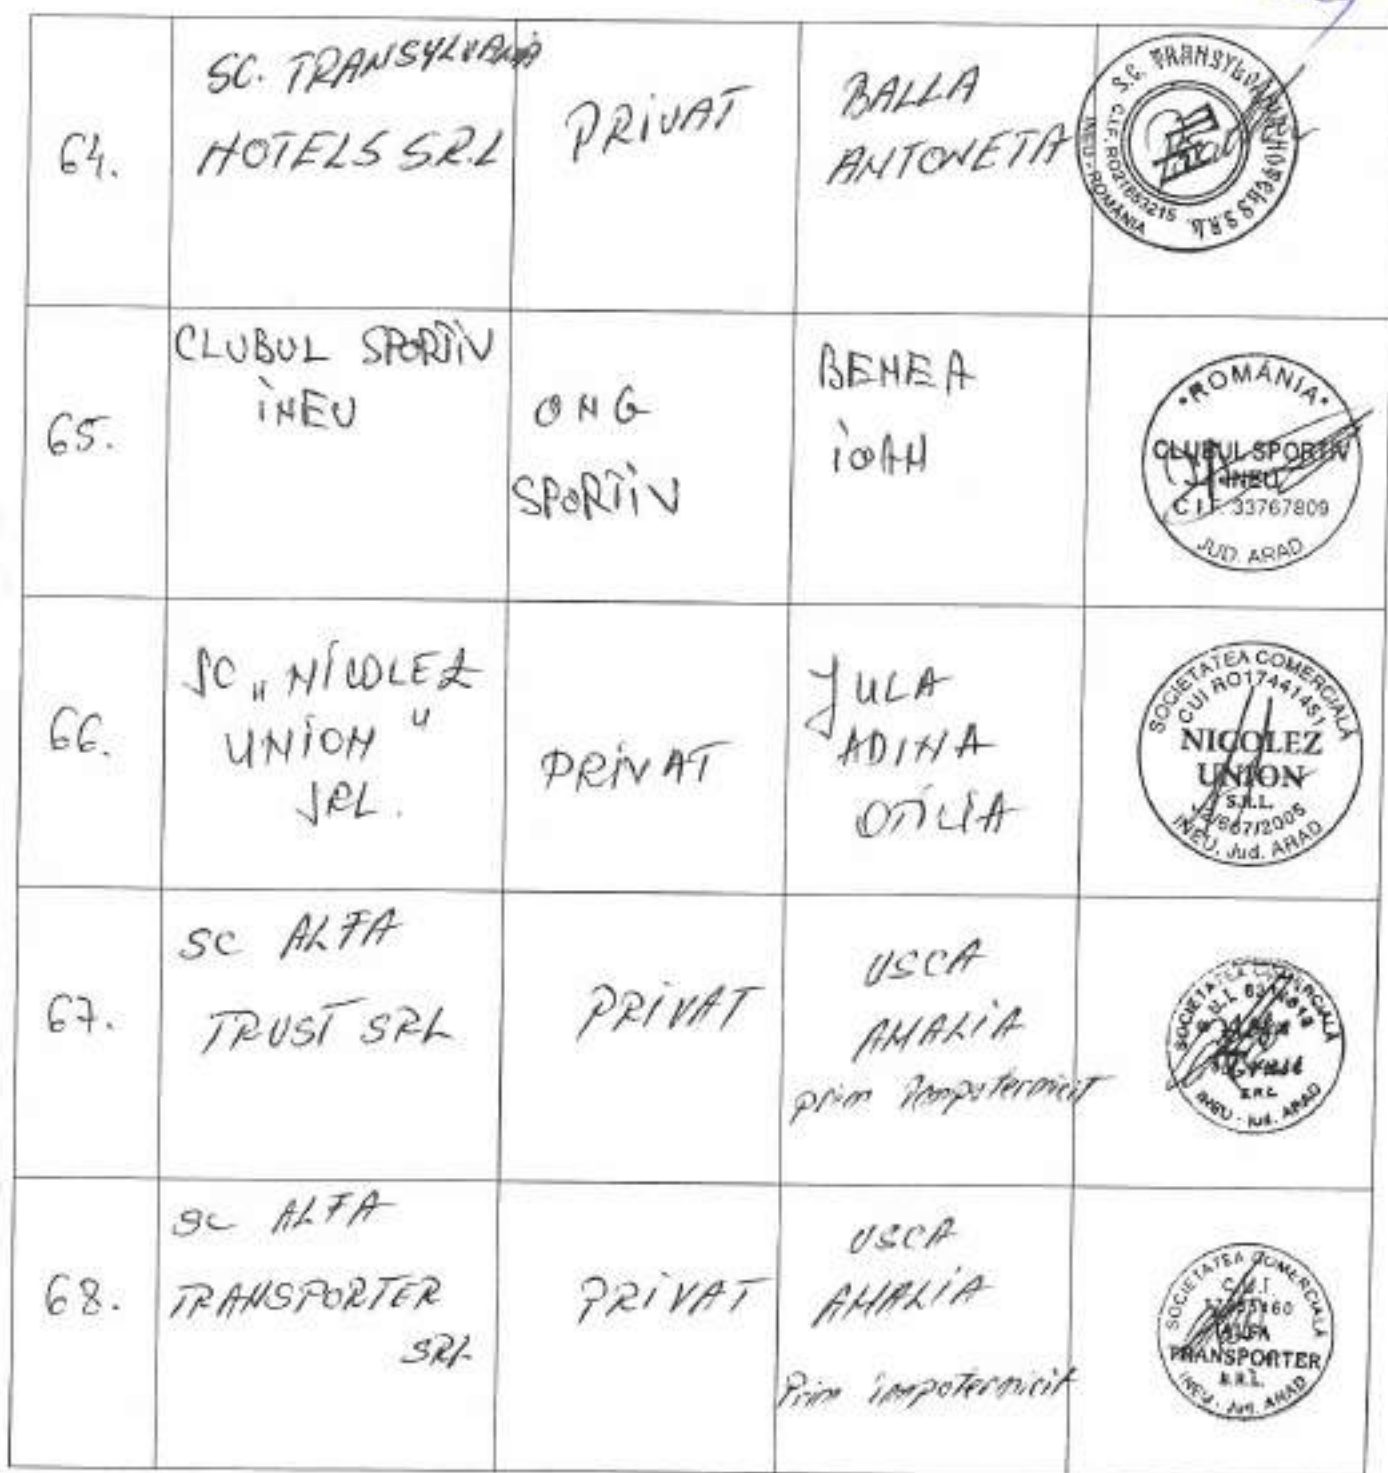 64.
SC. TRANSYLVANIA
HOTELS SRL
PRIVAT
BALLA
ANTONETA
S.C. TRANSYLVANIA HOTELS S.R.L.
C.I.F. RO21653215
INEU - ROMÂNIA
65.
CLUBUL SPORTIV
INEU
ONG
SPORTIV
BENEA
IOAN
*ROMÂNIA*
CLUBUL SPORTIV
INEU
C.I.F. 33767809
JUD. ARAD
66.
SC „NICOLEZ
UNION"
SRL.
PRIVAT
JULA
ADINA
OTILIA
SOCIETATEA COMERCIALĂ
CUI RO17441451
NICOLEZ
UNION
S.R.L.
INEU, Jud. ARAD
67.
SC ALFA
TRUST SRL
PRIVAT
USCA
AMALIA
prin împuternicit
SOCIETATEA COMERCIALĂ
Trust
S.R.L.
INEU - Jud. ARAD
68.
SC ALFA
TRANSPORTER
SRL
PRIVAT
USCA
AMALIA
Prin împuternicit
SOCIETATEA COMERCIALĂ
C.U.I.
ALFA
TRANSPORTER
S.R.L.
INEU - Jud. ARAD